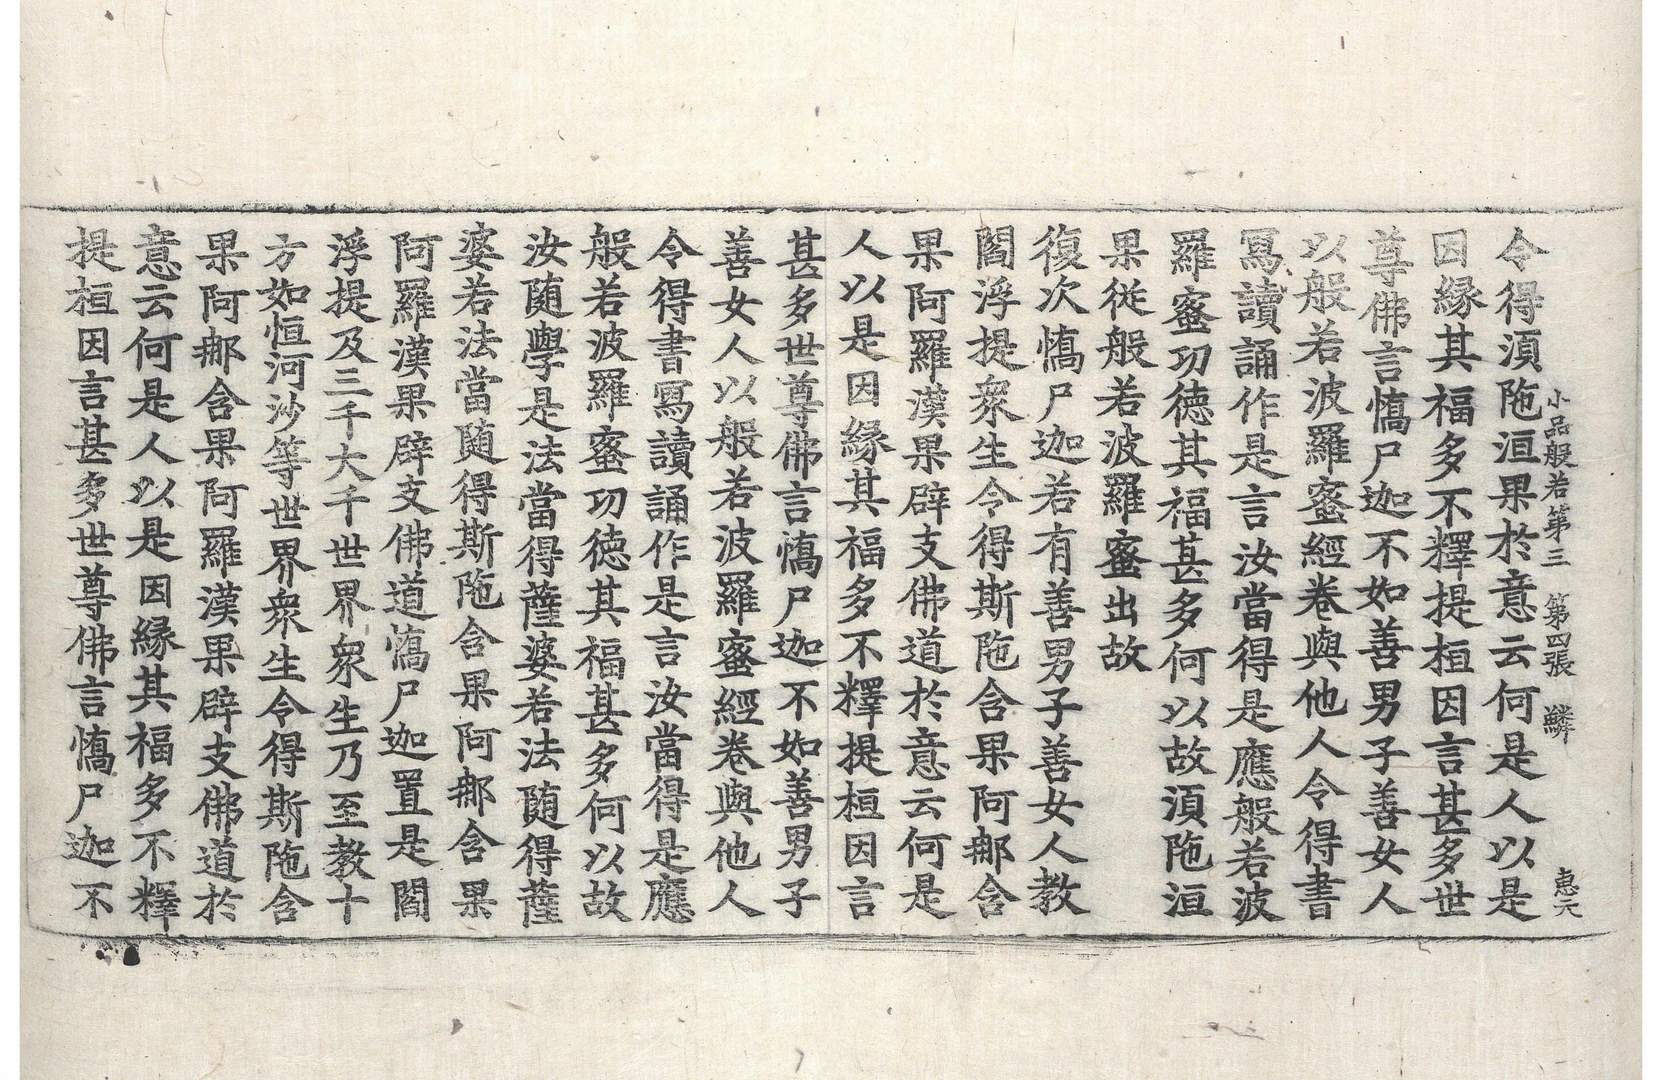 小品般若第三 第四張 鱗 惠天
令得湏陁洹果於意云何是人以是
因縁其福多不釋提桓因言甚多世
尊佛言憍尸迦不如善男子善女人
以般若波羅蜜經卷與他人令得書
寫讀誦作是言汝當得是應般若波
羅蜜功德其福甚多何以故湏陁洹
果從般若波羅蜜出故
復次憍尸迦若有善男子善女人教
閻浮提衆生令得斯陁含果阿那含
果阿羅漢果辟支佛道於意云何是
人以是因縁其福多不釋提桓因言
甚多世尊佛言憍尸迦不如善男子
善女人以般若波羅蜜經卷與他人
令得書寫讀誦作是言汝當得是應
般若波羅蜜功德其福甚多何以故
汝随學是法當得薩婆若法随得薩
婆若法當随得斯陁含果阿那含果
阿羅漢果辟支佛道憍尸迦置是閻
浮提及三千大千世界衆生乃至教十
方如恒河沙等世界衆生令得斯陁含
果阿那含果阿羅漢果辟支佛道於
意云何是人以是因縁其福多不釋
提桓因言甚多世尊佛言憍尸迦不